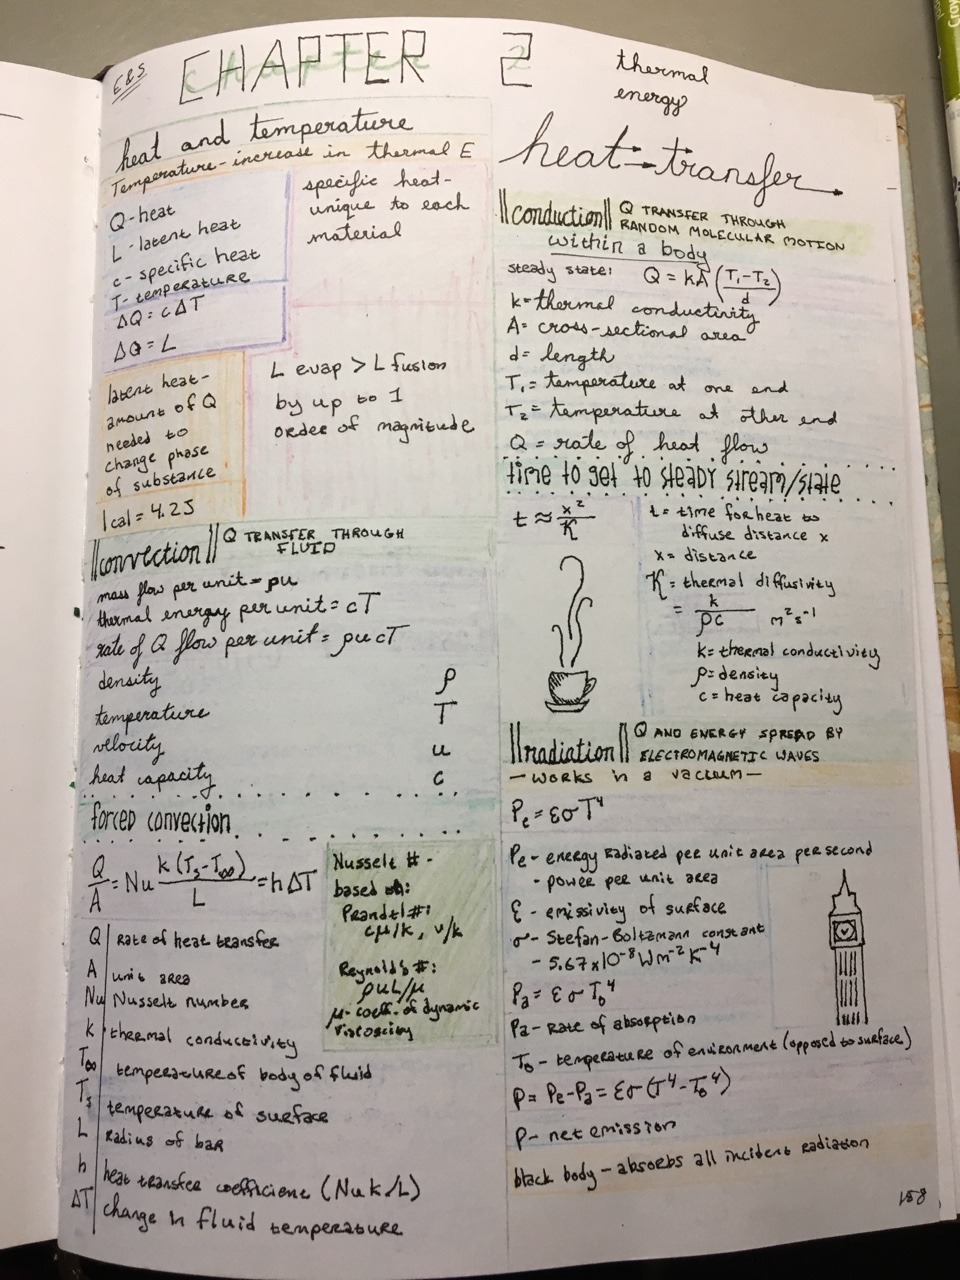 E&S
CHAPTER 2
thermal
energy
heat and temperature
Temperature - increase in thermal E
Q - heat
L - latent heat
c - specific heat
T - temperature
ΔQ = cΔT
ΔQ = L
specific heat -
unique to each
material
latent heat -
amount of Q
needed to
change phase
of substance
1 cal = 4.2J
L evap > L fusion
by up to 1
order of magnitude
||convection|| Q TRANSFER THROUGH
FLUID
mass flow per unit = ρu
thermal energy per unit = cT
rate of Q flow per unit = ρucT
density ρ
temperature T
velocity u
heat capacity c
forced convection
Q/A = Nu k(Ts-T∞)/L = hΔT
Nusselt # -
based on:
Prandtl #:
cμ/k, ν/k
Reynolds #:
ρuL/μ
μ - coeff. of dynamic
viscosity
Q rate of heat transfer
A unit area
Nu Nusselt number
k thermal conductivity
T∞ temperature of body of fluid
Ts temperature of surface
L radius of bar
h heat transfer coefficient (Nuk/L)
ΔT change in fluid temperature
heat transfer
||conduction|| Q TRANSFER THROUGH
RANDOM MOLECULAR MOTION
within a body
steady state: Q = kA (T₁-T₂/d)
k = thermal conductivity
A = cross-sectional area
d = length
T₁ = temperature at one end
T₂ = temperature at other end
Q = rate of heat flow
time to get to steady stream/state
t ≈ x²/K
t = time for heat to
diffuse distance x
x = distance
K = thermal diffusivity
= k/ρc m²s⁻¹
k = thermal conductivity
ρ = density
c = heat capacity
||radiation|| Q AND ENERGY SPREAD BY
ELECTROMAGNETIC WAVES
- works in a vacuum -
Pe = εσT⁴
Pe - energy radiated per unit area per second
- power per unit area
ε - emissivity of surface
σ - Stefan-Boltzmann constant
- 5.67 x 10⁻⁸ Wm⁻²K⁻⁴
Pa = εσT₀⁴
Pa - rate of absorption
T₀ - temperature of environment (opposed to surface)
P = Pe - Pa = εσ(T⁴ - T₀⁴)
P - net emission
black body - absorbs all incident radiation
158